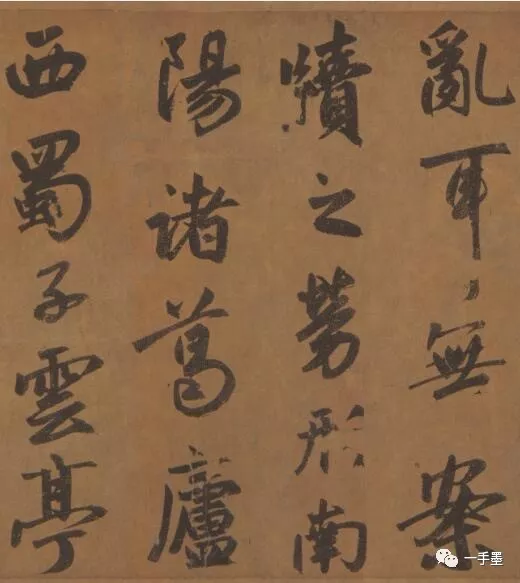 亂耳無案
牘之勞形南
陽諸葛廬
西蜀子雲亭
一手墨